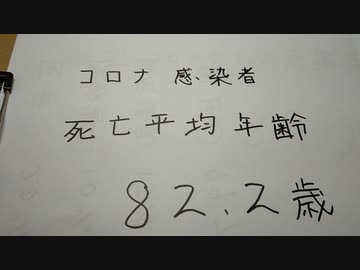 コロナ 感染者
死亡平均年齢
82、2歳